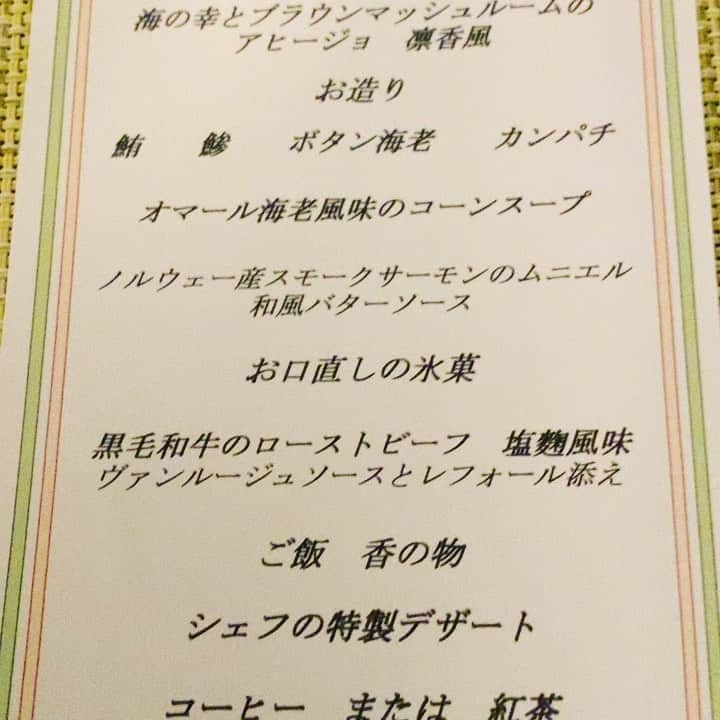 海の幸とブラウンマッシュルームの
アヒージョ　凛香風
お造り
鮪　鰺　ボタン海老　カンパチ
オマール海老風味のコーンスープ
ノルウェー産スモークサーモンのムニエル
和風バターソース
お口直しの氷菓
黒毛和牛のローストビーフ　塩麹風味
ヴァンルージュソースとレフォール添え
ご飯　香の物
シェフの特製デザート
コーヒー　または　紅茶